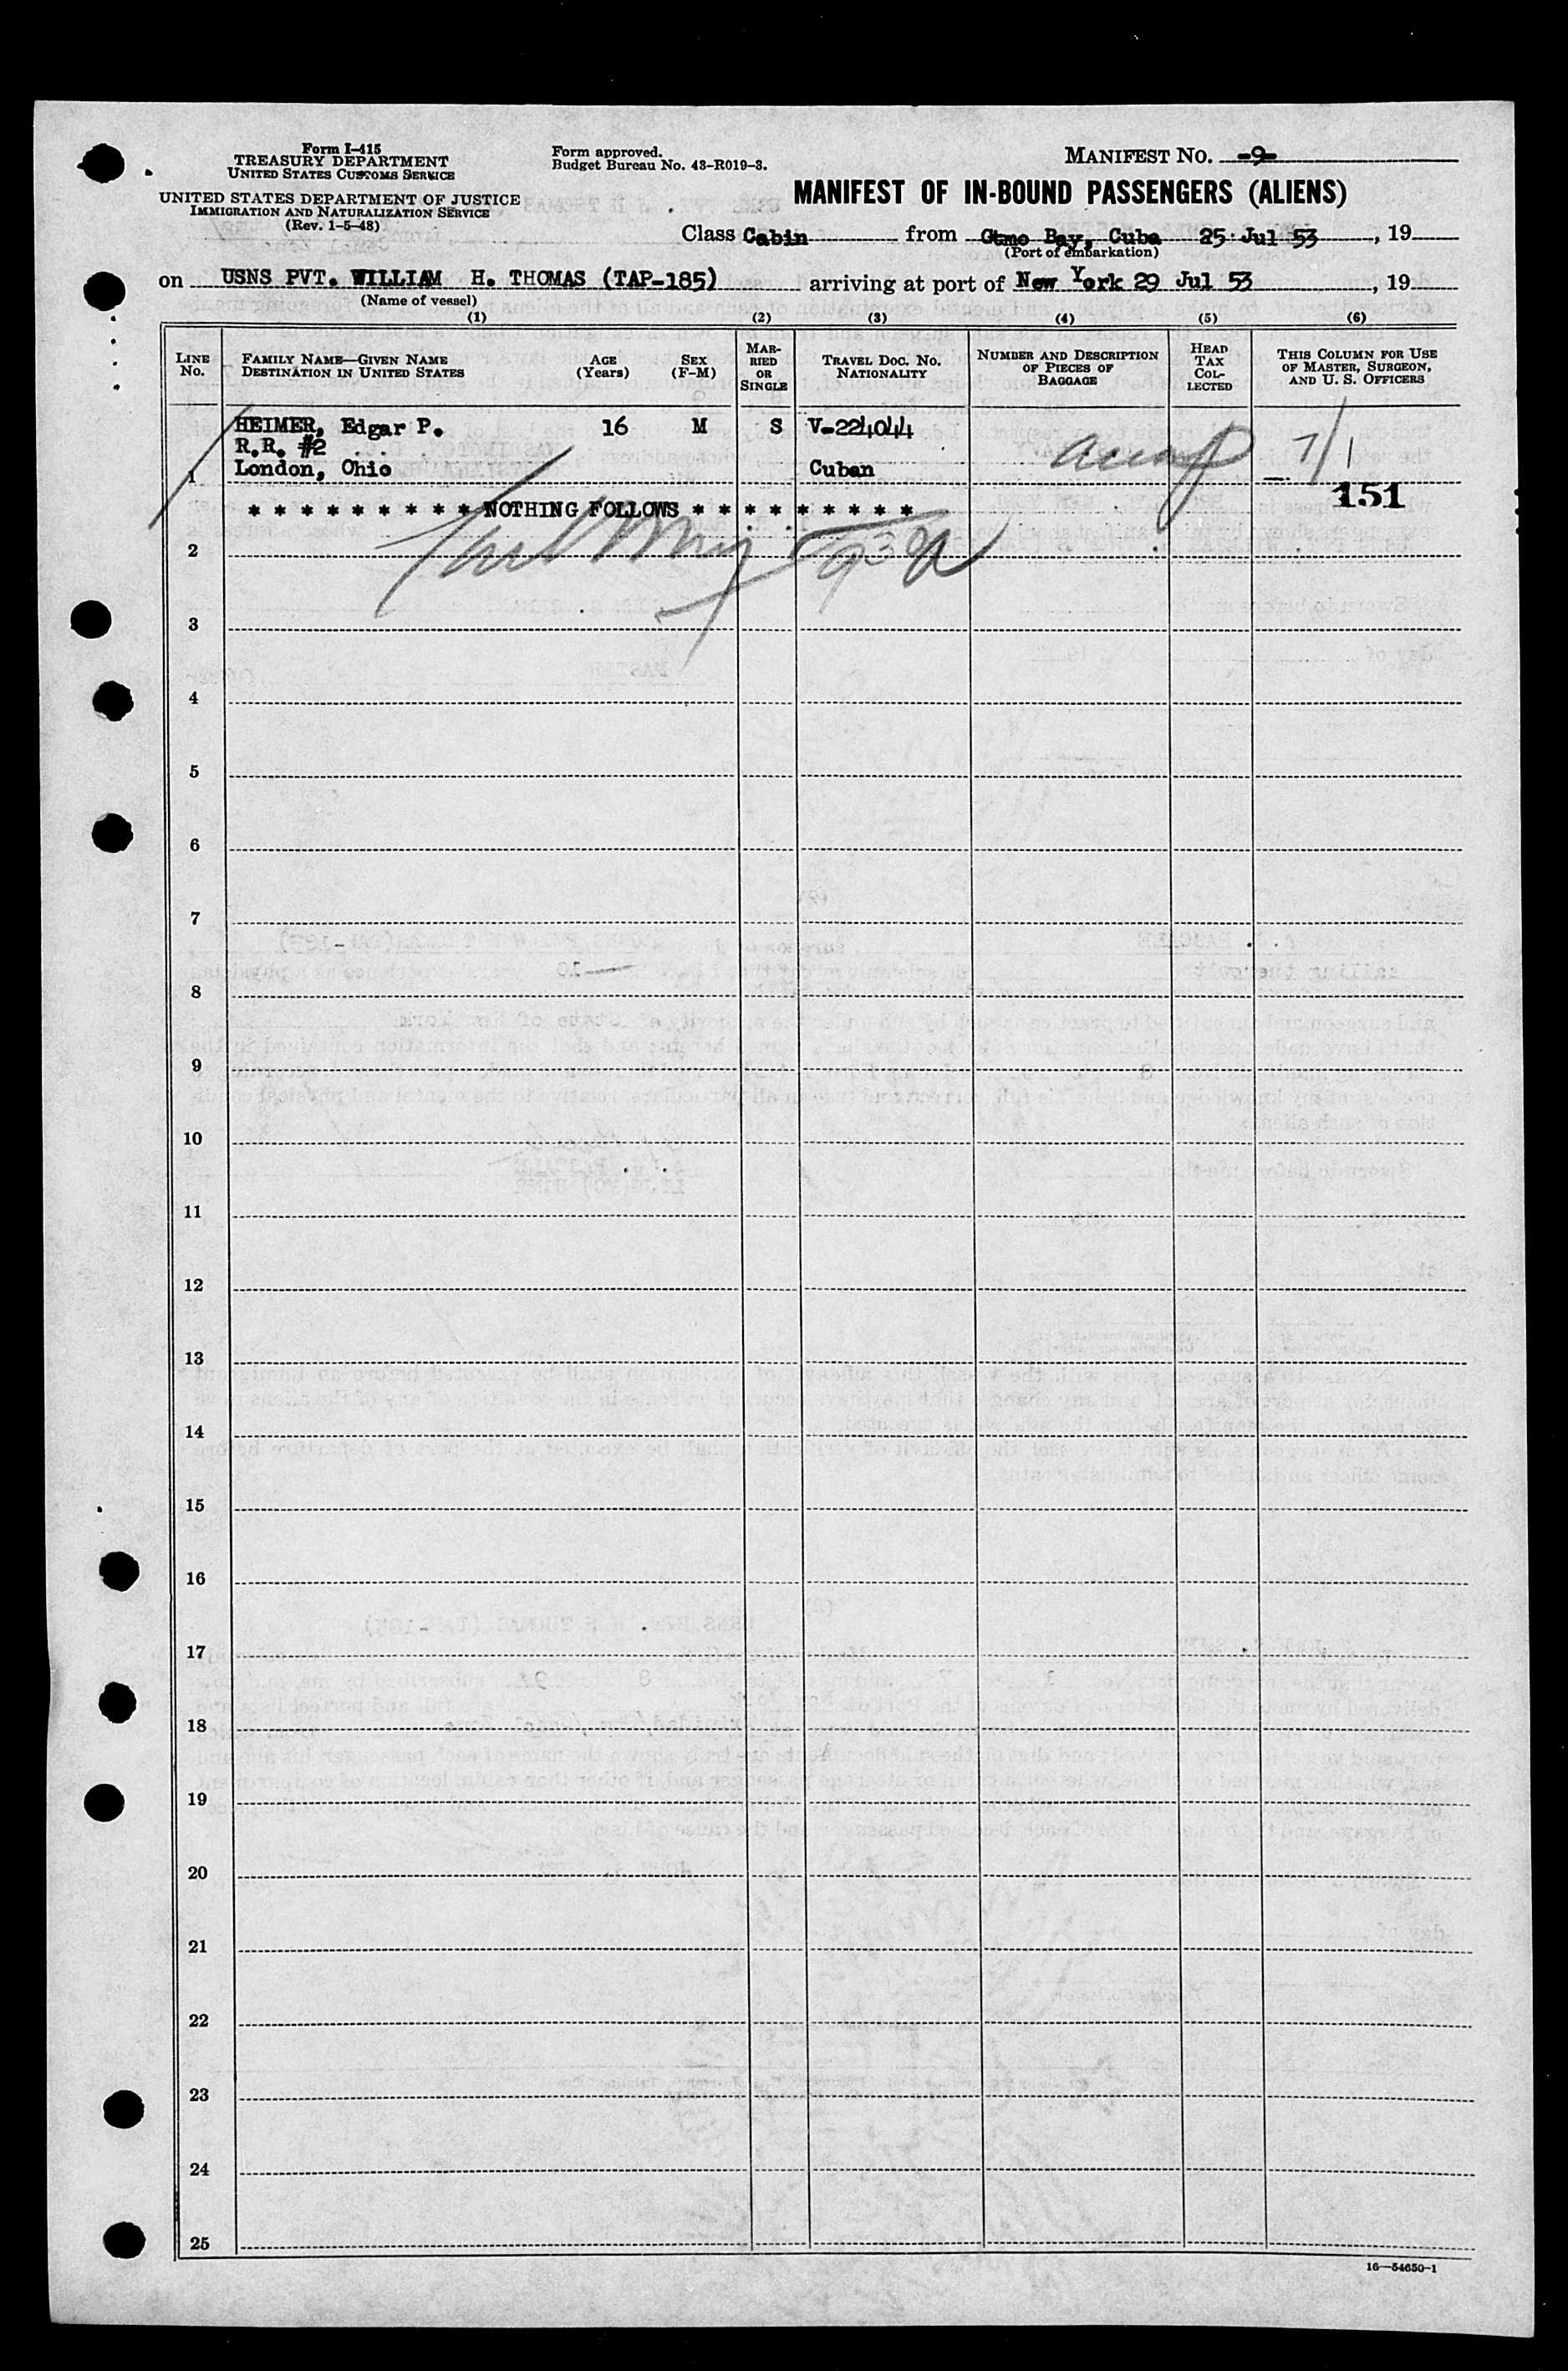 Form I-415
TREASURY DEPARTMENT
UNITED STATES CUSTOMS SERVICE
UNITED STATES DEPARTMENT OF JUSTICE
IMMIGRATION AND NATURALIZATION SERVICE
(Rev. 1-5-48)
Form approved.
Budget Bureau No. 43-R019-3.
MANIFEST NO. -9-
MANIFEST OF IN-BOUND PASSENGERS (ALIENS)
Class Cabin from Gtmo Bay, Cuba 25 Jul 53, 19
(Port of embarkation)
on USNS PVT. WILLIAM H. THOMAS (TAP-185) arriving at port of New York 29 Jul 53, 19
(Name of vessel)
(1) (2) (3) (4) (5) (6)
LINE NO.
FAMILY NAME—GIVEN NAME
DESTINATION IN UNITED STATES
AGE (Years)
SEX (F-M)
MARRIED OR SINGLE
TRAVEL DOC. NO.
NATIONALITY
NUMBER AND DESCRIPTION OF PIECES OF BAGGAGE
HEAD TAX COLLECTED
THIS COLUMN FOR USE OF MASTER, SURGEON, AND U. S. OFFICERS
HEIMER, Edgar P. 16 M S V-224044
R.R. #2
1 London, Ohio Cuban 7/1
151
* * * * * * * * * * NOTHING FOLLOWS * * * * * * * * *
2
3
4
5
6
7
8
9
10
11
12
13
14
15
16
17
18
19
20
21
22
23
24
25
16—54650-1